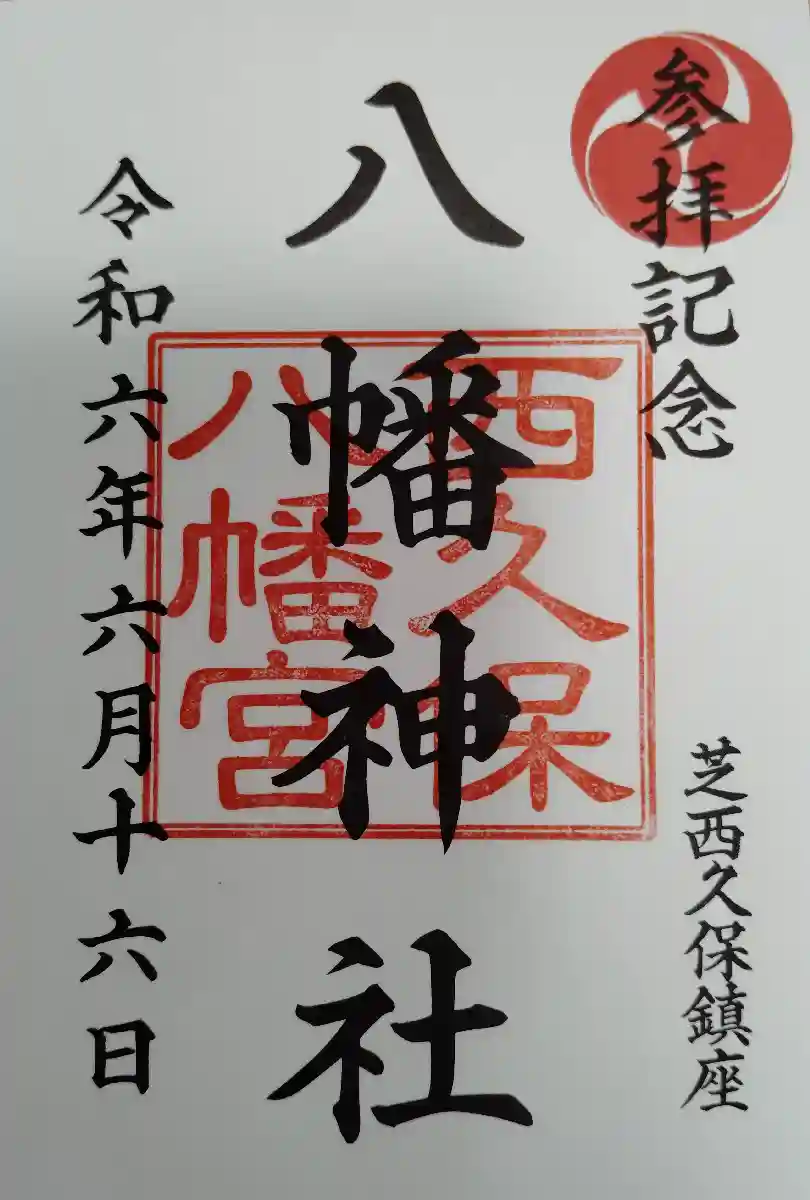 参拝記念
芝西久保鎮座
八幡神社
西久保
八幡宮
令和六年六月十六日